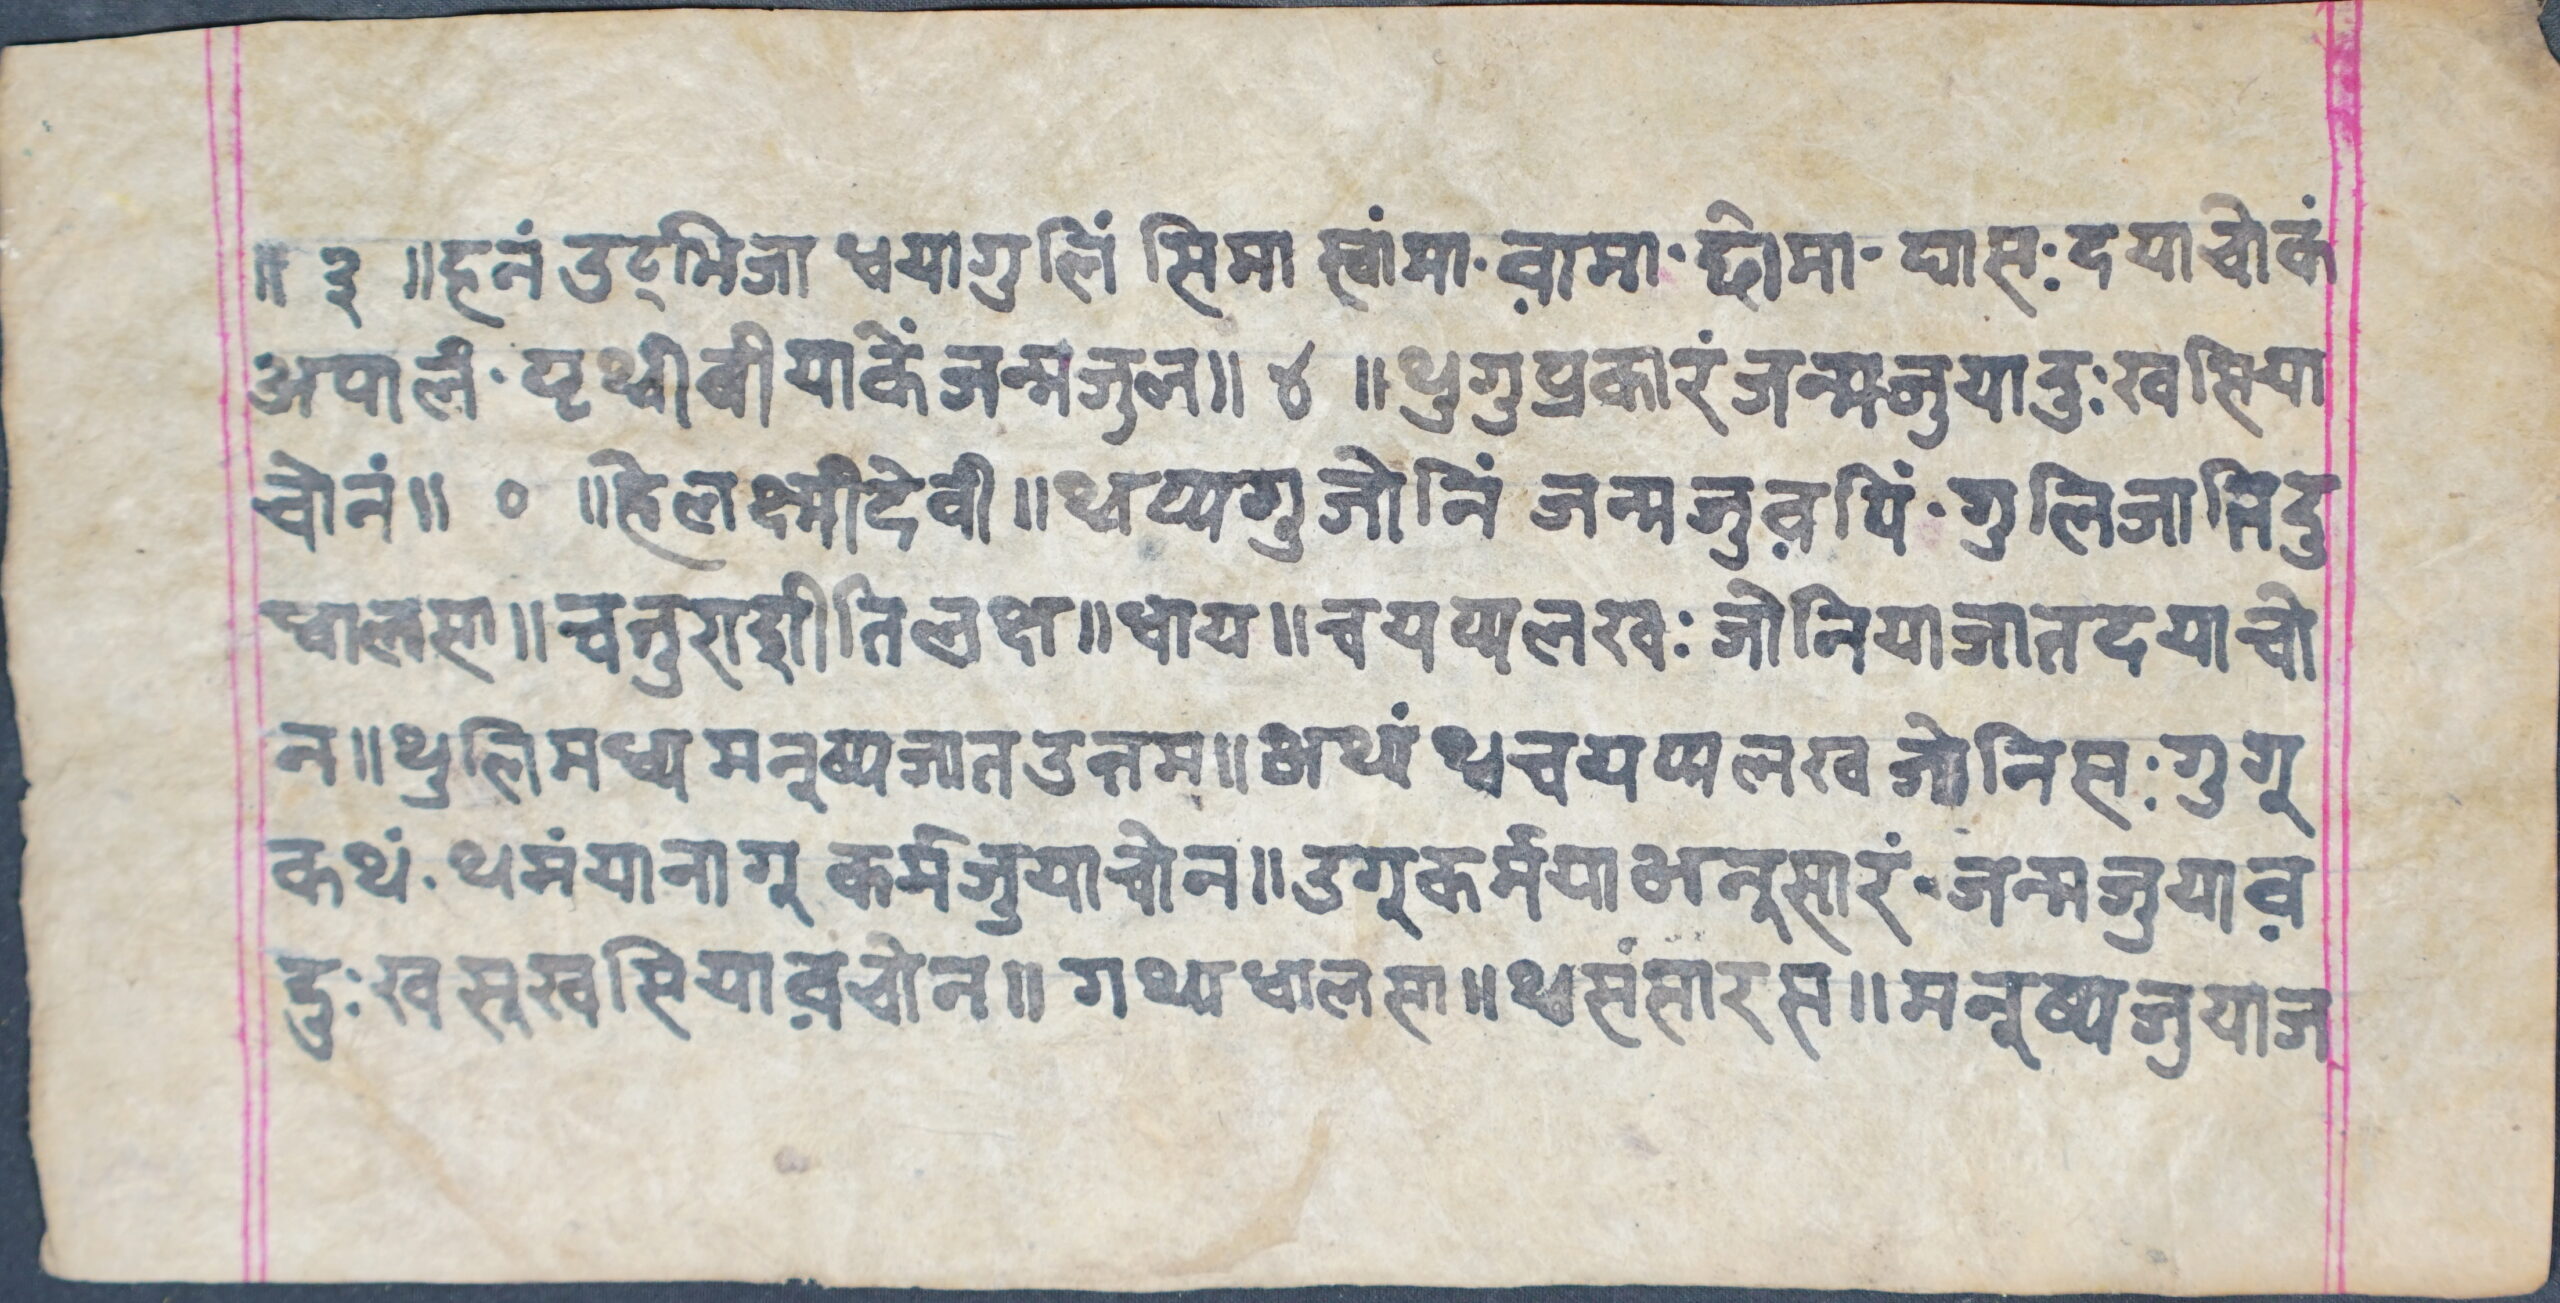 ॥ ३ ॥ हनं उद्भिजा ध्वयागुलिं सिमा स्वांमा· व़ामा· छोमा· घासः दयाचोकं
अपालं· पृथ्वी वी याकें जन्मजुल॥ ४ ॥ थुगुप्रकारं जन्मजुया दुःखसिया
चोनं॥ ० ॥ हेलक्ष्मीदेवी॥ थ्वप्यगु जोनिं जन्मजुव़पिं· गुलिजातिदु
धालसा॥ चतुराशीतिलक्ष॥ धाय॥ चयप्यलखः जोनियाजातदयाचो
न॥ थुलिमध्य मनूष्यजात उत्तम॥ अथ्यं थ्वचयप्यलख जोनिसः गुगू
कथं· थमंयानागू कर्मजुयाचोन॥ उगूकर्मया अनूसारं· जन्मजुयाव़
दुःखसूखसियाव़चोन॥ गथ्यधालसा॥ थ्वसंसारस॥ मनूष्यजुयाज